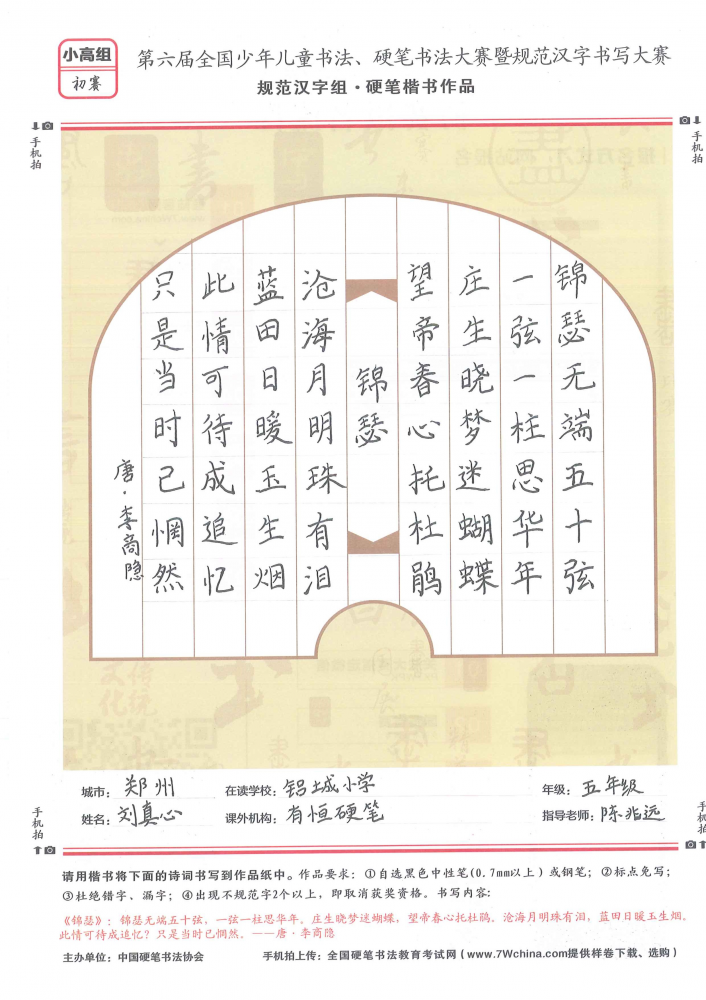 小高组
初赛
第六届全国少年儿童书法、硬笔书法大赛暨规范汉字书写大赛
规范汉字组·硬笔楷书作品
手机拍
手机拍
锦瑟无端五十弦
一弦一柱思华年
庄生晓梦迷蝴蝶
望帝春心托杜鹃
锦瑟
沧海月明珠有泪
蓝田日暖玉生烟
此情可待成追忆
只是当时已惘然
唐·李商隐
城市：郑州
在读学校：铝城小学
年级：五年级
姓名：刘真心
课外机构：有恒硬笔
指导老师：陈兆远
手机拍
手机拍
请用楷书将下面的诗词书写到作品纸中。作品要求：①自选黑色中性笔(0.7mm以上）或钢笔；②标点免写；
③杜绝错字、漏字；④出现不规范字2个以上，即取消获奖资格。书写内容：
《锦瑟》：锦瑟无端五十弦，一弦一柱思华年。庄生晓梦迷蝴蝶，望帝春心托杜鹃。沧海月明珠有泪，蓝田日暖玉生烟。
此情可待成追忆？只是当时已惘然。——唐·李商隐
主办单位：中国硬笔书法协会
手机拍上传：全国硬笔书法教育考试网（www.7Wchina.com提供样卷下载、选购）